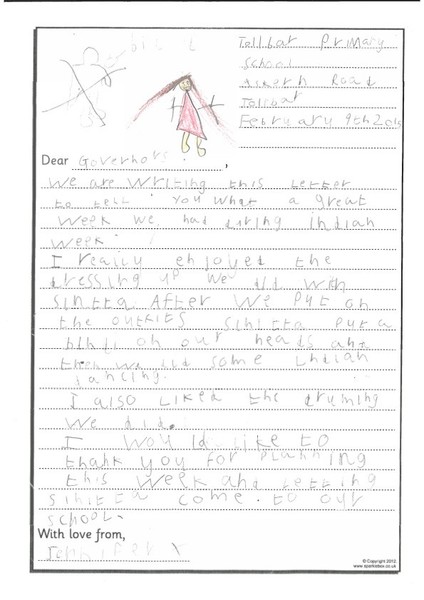 Tollbar Primary
School
Road
Tollbar
February 9th
Dear Governors,
We are writing this letter
to tell you what a great
week we had during indian
week.
I really enjoyed the
dressing up we did with
sinitta After we put on
the outfits sinitta put a
bindi on our heads and
then we did some indian
dancing.
I also liked the druming
we did.
I would like to
thank you for planning
this week and letting
sinitta come. to our
school.
With love from,
© Copyright 2012
www.sparklebox.co.uk